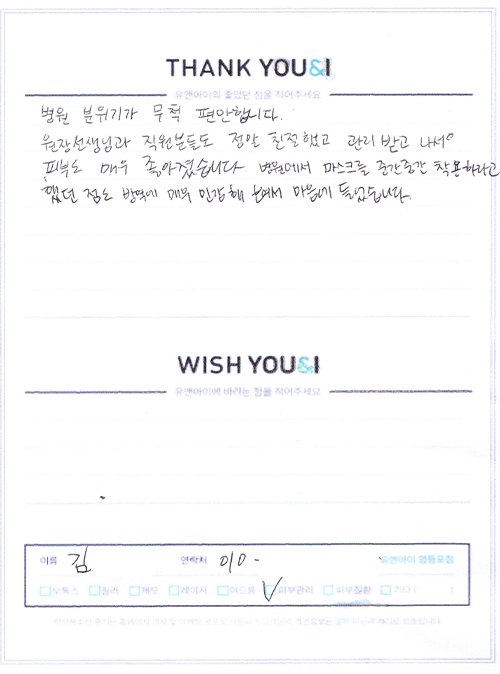 THANK YOU&I
유앤아이의 좋았던 점을 적어주세요
병원 분위기가 무척 편안합니다.
원장선생님과 직원분들도 정말 친절했고 관리 받고 나서
피부도 매우 좋아졌습니다. 병원에서 마스크를 중간중간 착용하라고
했던 점도 방역에 매우 민감해 보여서 마음에 들었습니다.
WISH YOU&I
유앤아이에 바라는 점을 적어주세요
이름 김 연락처 010 - 유앤아이 영등포점
보톡스 필러 제모 레이저 여드름 피부관리 피부질환 기타 ( )